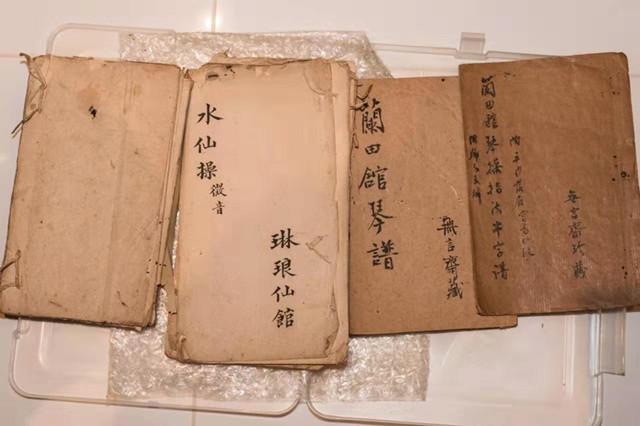 水仙操徵音
琳琅仙館
蘭田館琴譜
無言齋藏
蘭田館琴操指法半字譜
無言齋珍藏